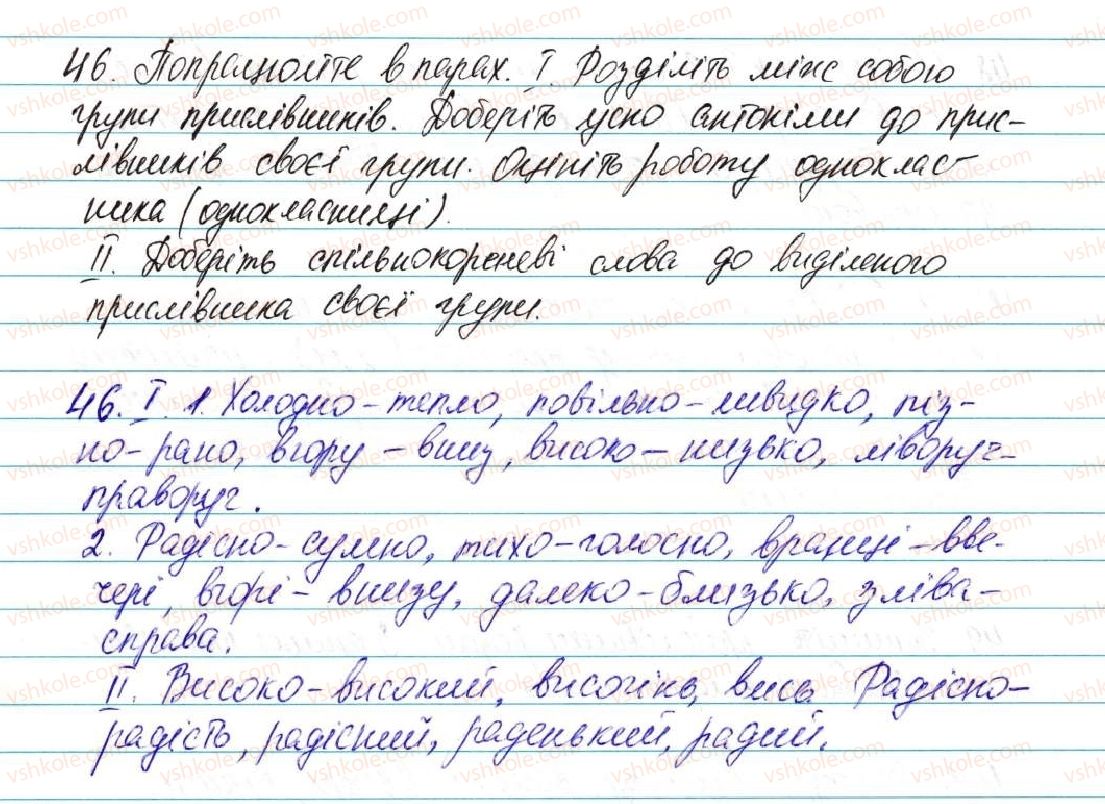 46. Попрацюйте в парах. I. Розділіть між собою
групи прислівників. Доберіть усно антоніми до прис-
лівників своєї групи. Оцініть роботу одноклас-
ника (однокласниці).
II. Доберіть спільнокореневі слова до виділеного
прислівника своєї групи.
46. I. 1. Холодно - тепло, повільно - швидко, піз-
но - рано, вгору - вниз, високо - низько, ліворуч -
праворуч.
2. Радісно - сумно, тихо - голосно, вранці - вве-
чері, вгорі - внизу, далеко - близько, зліва -
справа.
II. Високо - високий, височінь, вись. Радісно -
радість, радісний, раденький, радий.